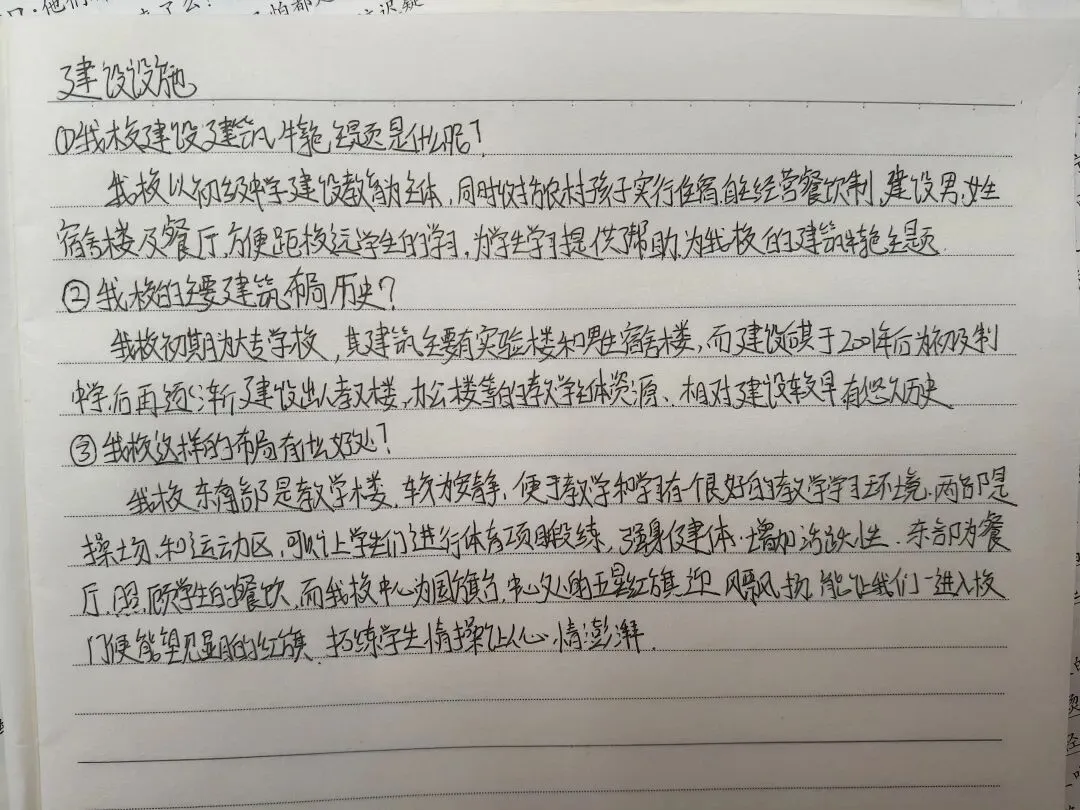 建设设施
①我校建设建筑特色主题是什么呢？
我校以初级中学建设教育为主体，同时收揽农村孩子实行住宿.自主经营餐饮制，建设男，女生
宿舍楼及餐厅，方便距校远学生的学习，为学生学习提供了帮助，为我校的建筑特色主题.
②我校的主要建筑布局历史？
我校初期为大专学校，其建筑主要有实验楼和男生宿舍楼，而建设于2001年后为初级制
中学，后再逐渐建设出教学楼，办公楼等的教学主体资源、相对建设较早有悠久历史
③我校这样的布局有什么好处？
我校东南部是教学楼，较为安静，便于教学和学习在个很好的教学学习环境，西部是
操场，和运动区，可以让学生们进行体育项目锻练，强身健体.增加活跃性.东部为餐
厅，照顾学生的餐饮，而我校中心为国旗台，中心处的五星红旗迎风飘扬，能让我们一进入校
门便能望见显眼的红旗，_练学生情操让人心情澎湃.